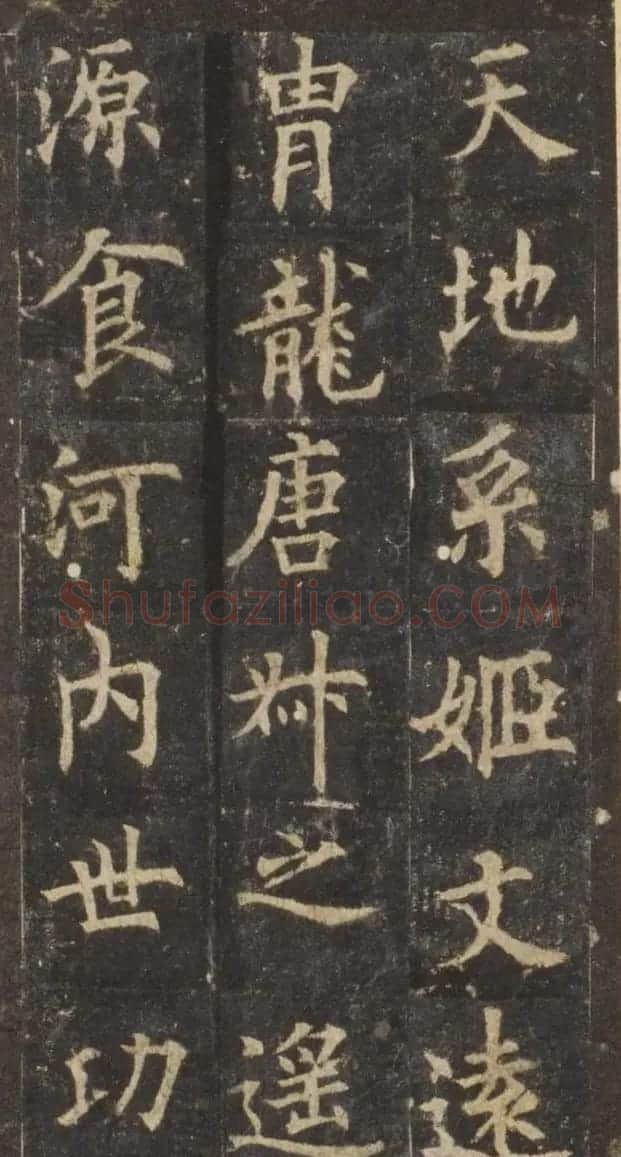 天地系姬文遠
胄龍唐叔之遥
源食河内世功
Shufaziliao.COM